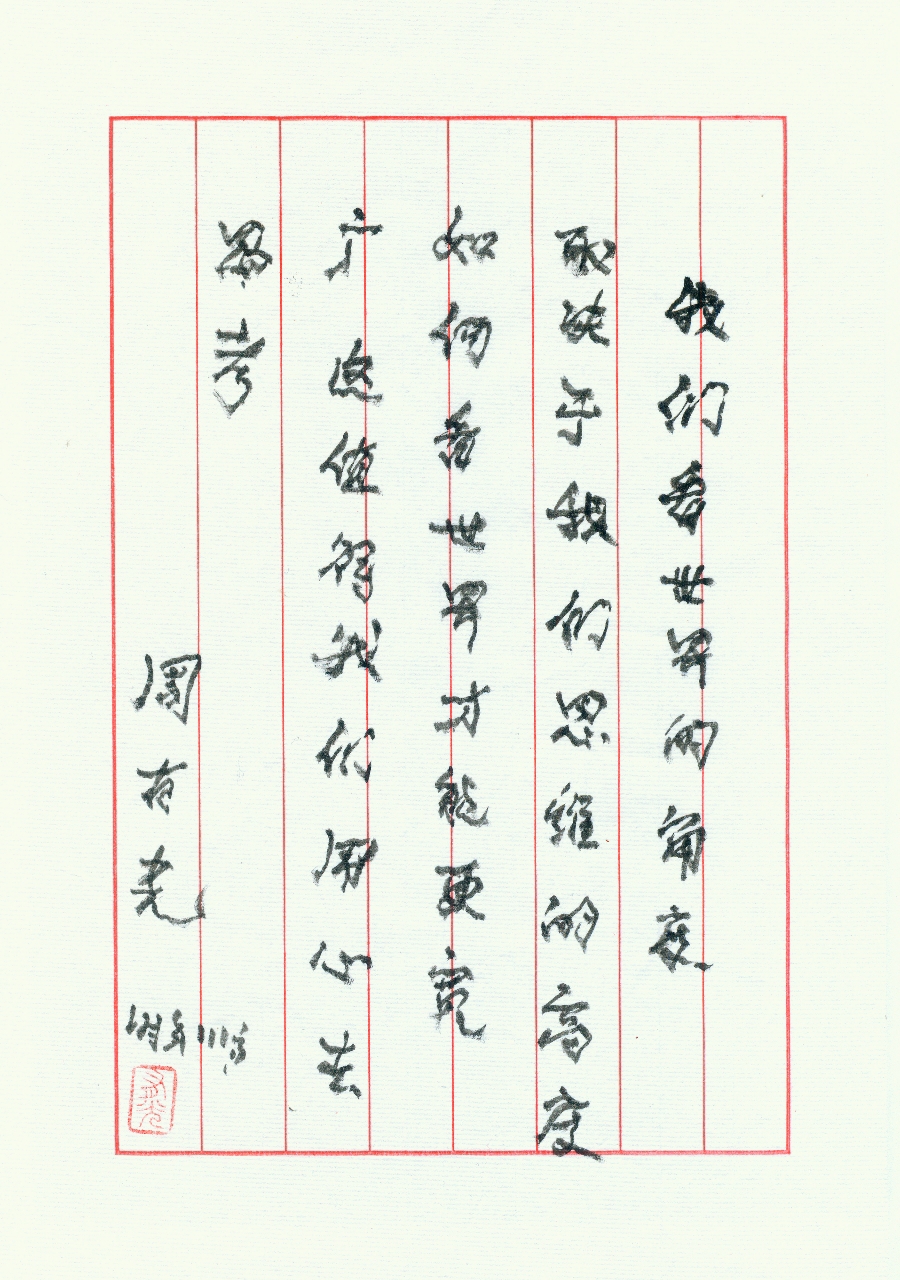 我们看世界的角度
取决于我们思维的高度
如何看世界才能更宽
广 这值得我们用心去
思考
周有光
时年111岁
有光